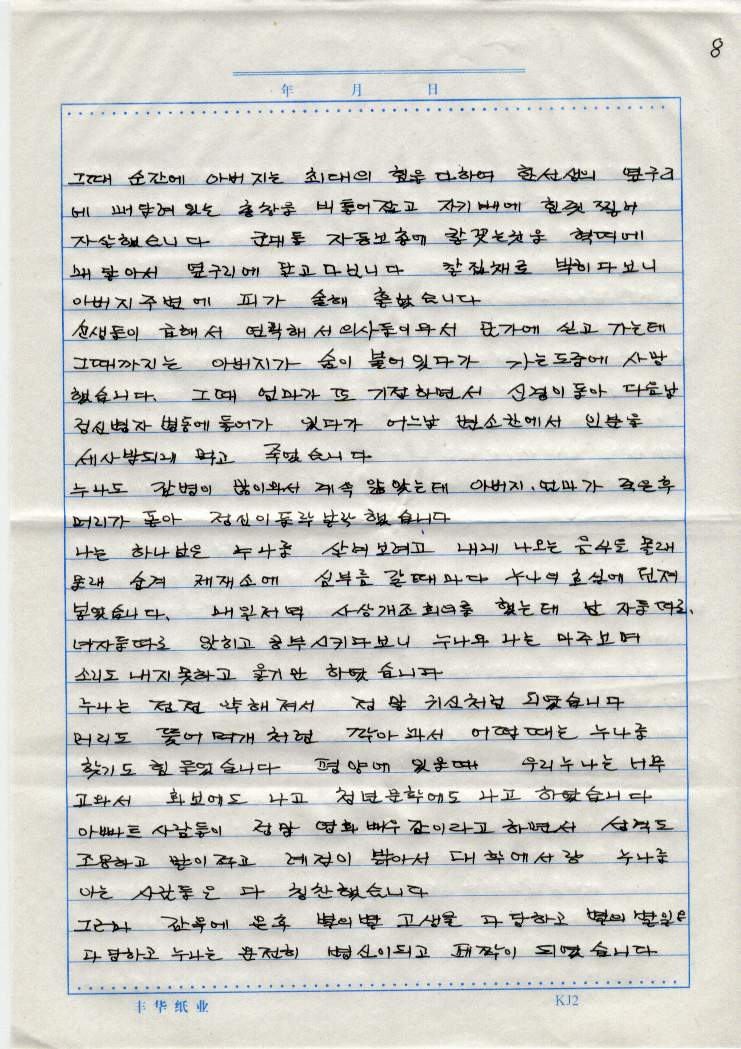 8
年 月 日
그때 순간에 아버지는 최대의 힘을 다하여 한선생의 옆구리
에 매달려있는 총창을 비틀어 잡고 자기배에 힘껏 찔러
자살했습니다 군대들 자동보총에 칼꽂는것을 혁띠에
매달아서 옆구리에 달고 다닙니다 칼집채로 박히다보니
아버지주변에 피가 술해 흘렀습니다
선생들이 급해서 연락해서 의사들이 와서 단가에 싣고 가는데
그때까지는 아버지가 숨이 붙어있다가 가는도중에 사망
했습니다. 그때 엄마가 또 기절하면서 신경이 돌아 다음날
정신병자 병동에 들어가 있다가 어느날 변소칸에서 인분을
세사발되게 먹고 죽었습니다
누나도 잡병이 많이와서 계속 앓았는데 아버지.엄마가 죽은후
머리가 돌아 정신이 들락날락 했습니다
나는 하나남은 누나를 살려보려고 내게 나오는 음식도 몰래
몰래 숨겨 제재소에 심부름 갈때마다 누나여 호실에 던져
주었습니다. 매일저녁 사상개조회의를 했는데 남자들따로,
녀자들따로 앉히고 공부시키다보니 누나와 나는 마주보며
소리도 내지못하고 울기만 하였습니다
누나는 점점 약해져서 정말 귀신처럼 되였습니다
머리도 뜯어 번개처럼 깍아놔서 어떤때는 누나를
찾기도 힘들었습니다 평양에 있을때 우리누나는 너무
고와서 화보에도 나고 청년문학에도 나고 하였습니다
아빠트 사람들이 정말 영화배우감이라고 하면서 성격도
조용하고 말이적고 례절이 밝아서 대학에서랑 누나를
아는 사람들은 다 칭찬했습니다
그러나 감옥에 온후 별의별 고생을 다 당하고 별의 별일을
다 당하고 누나는 완전히 병신이되고 폐작이 되였습니다
丰华纸业 KJ2